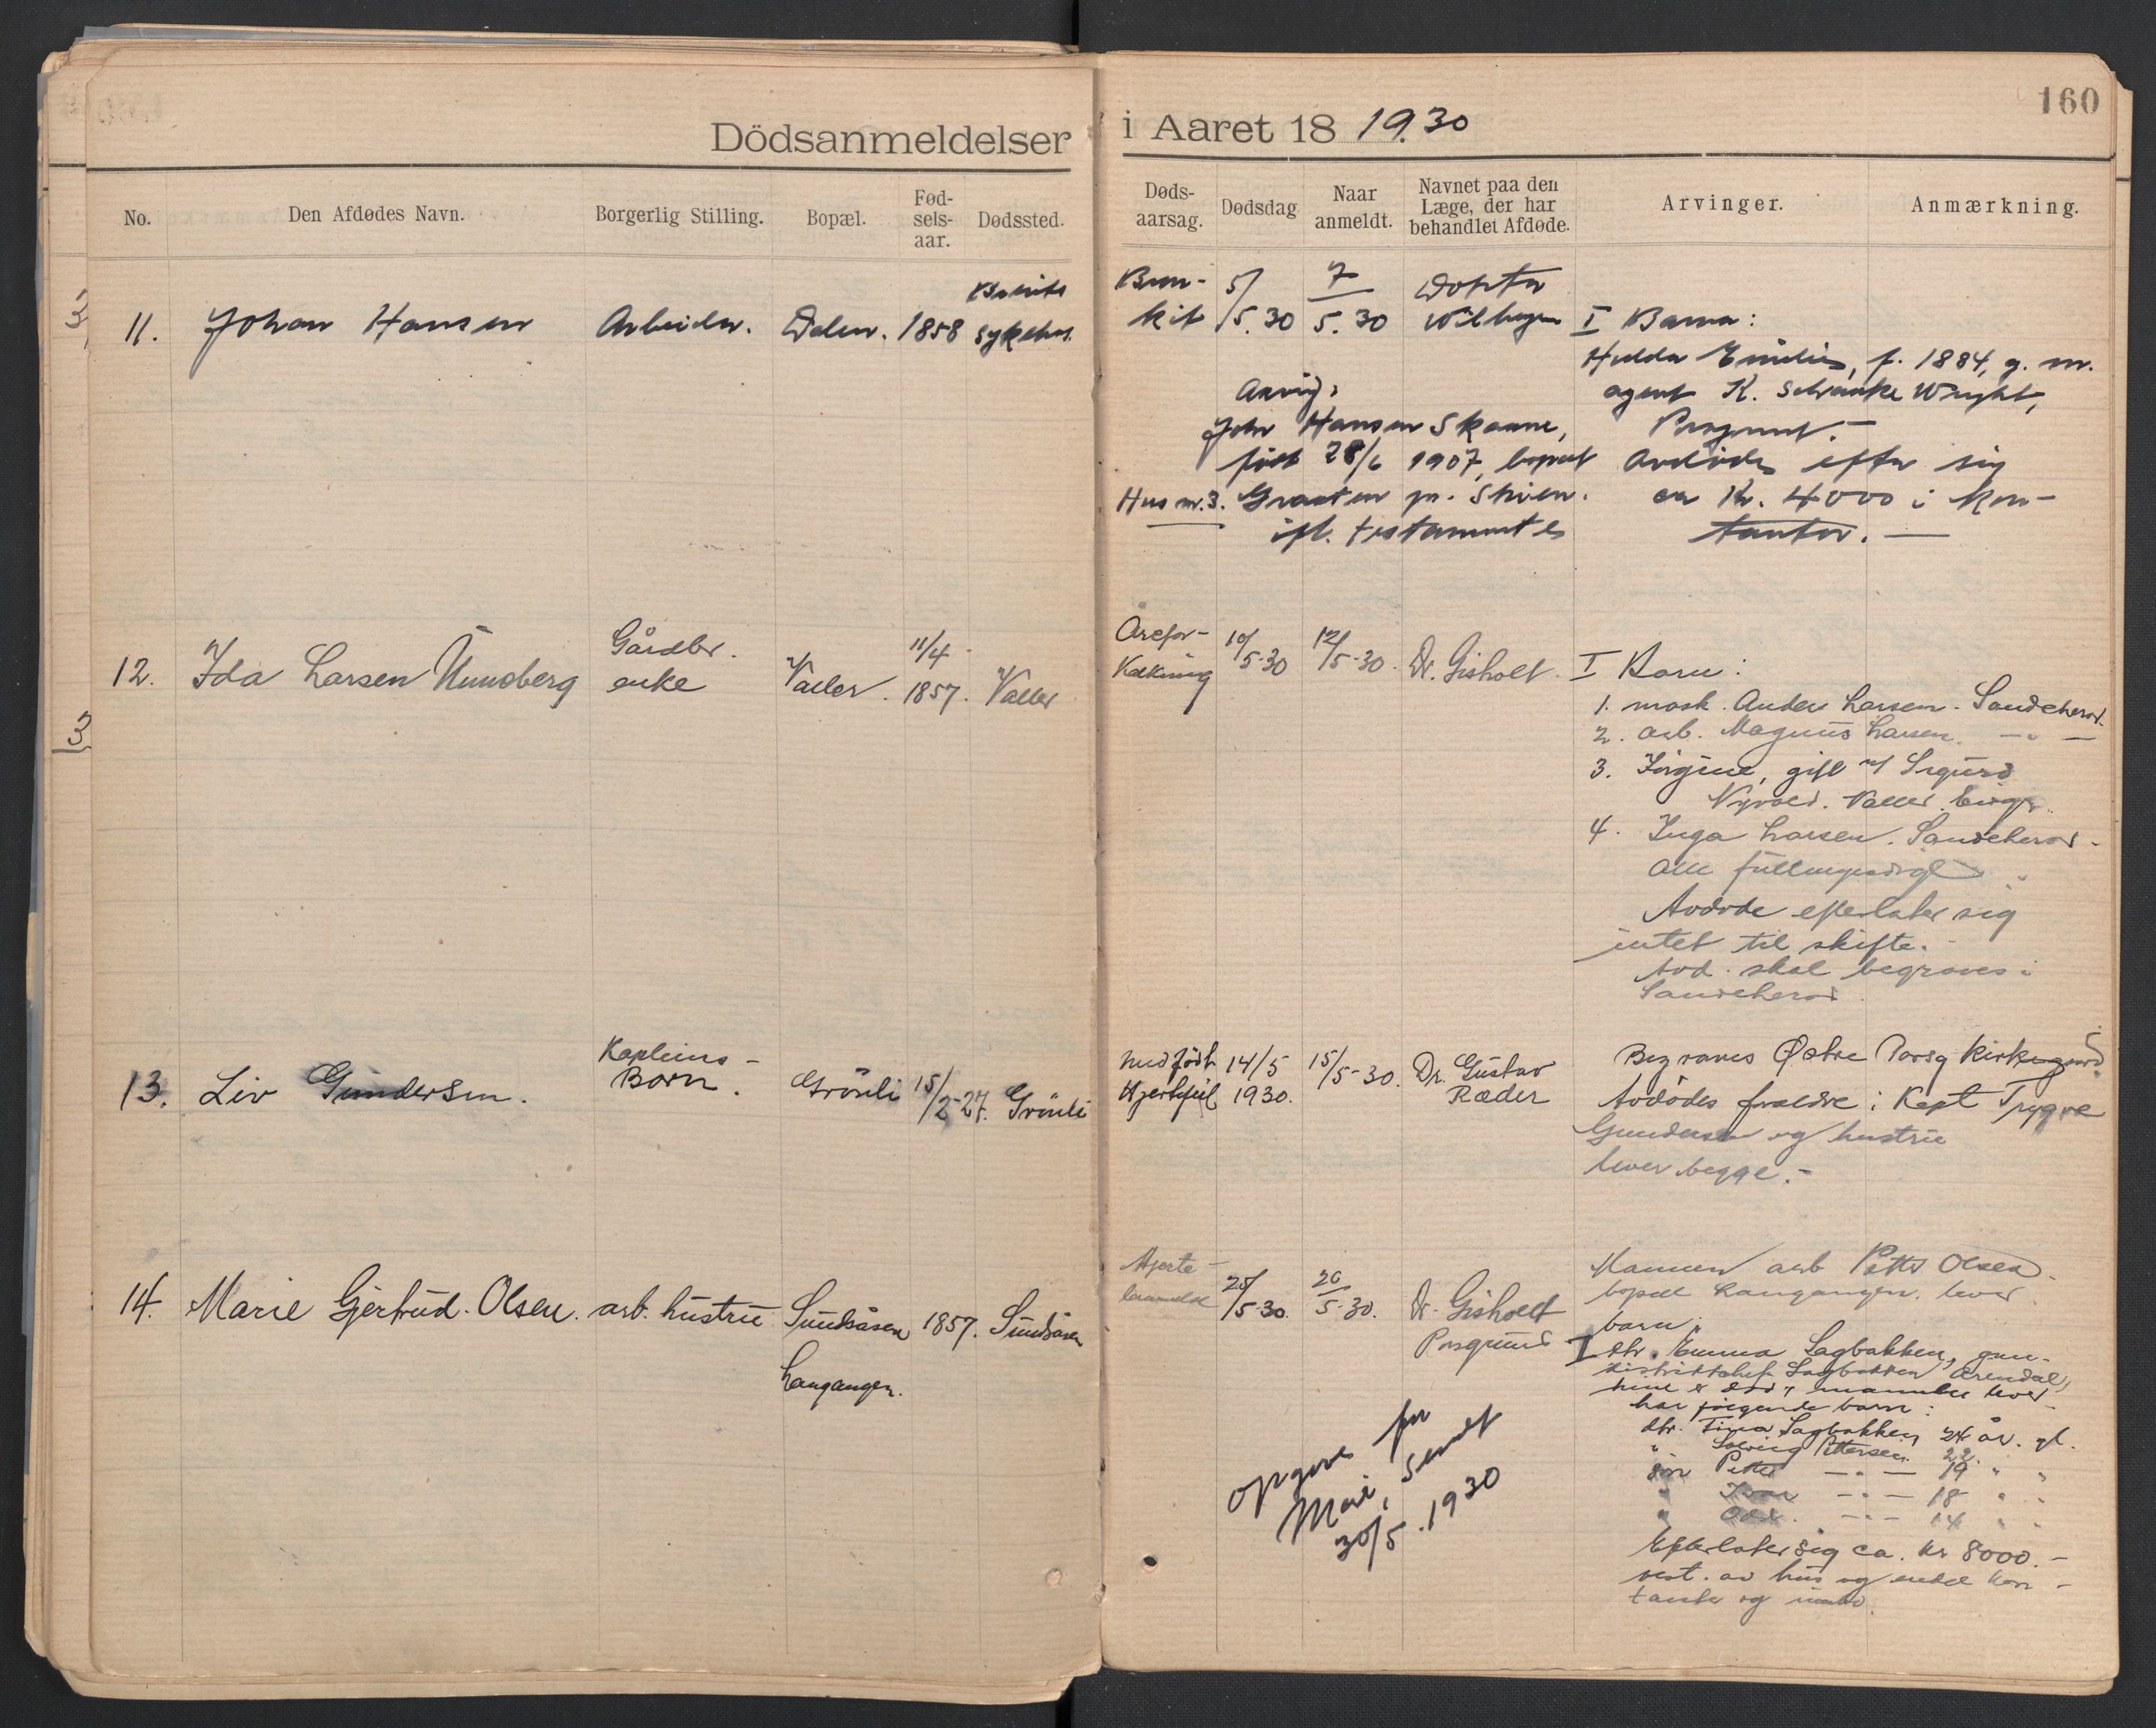 160
Dödsanmeldelser i Aaret 18 1930
No. Den Afdødes Navn. Borgerlig Stilling. Bopæl. Fød-sels-aar. Dødssted. Døds-aarsag. Dødsdag Naar anmeldt. Navnet paa den Læge, der har behandlet Afdøde. Arvinger. Anmærkning.
11. Johan Hansen Arbeider. Dalen. 1858 sykehus. 5/5.30 7/5.30 Doktor
I Barn:
Hulda Emilie, f. 1884, g. m.
agent K. Schanke Wright,
Porsgrunn.
Avdøde efter sig
ca Kr. 4000 i kon-
tanter. —
Arving:
John Hansen Skaane,
født 28/6 1907, bopæl
Hus nr. 3. Graaten pr. Skien.
ifl. testamente
12. Ida Larsen Gårdbr. enke Valler. 11/4 1857. Valler Årefor-kalkning 10/5-30 12/5-30. Dr. Gisholt.
I Barn:
1. mask. Anders Larsen. Sandeherad.
2. arb. Magnus Larsen. — " —
3. Jørgine, gift m/ Sigurd
Nyvold. Valler
4. Inga Larsen. Sandeherad.
Alle fullmyndige
Avdøde efterlater sig
intet til skifte.
Avd. skal begraves i
Sandeherad.
13. Liv Gundersen. Kapteins-Barn. Grönli 15/2-27. Grönli medfödt Hjertefeil 14/5 1930. 15/5-30. Dr. Gustav Ræder
Begraves Østre Porsg Kirkegård.
Avdödes foreldre: Kapt Trygve
Gundersen og hustru
lever begge. -
14. Marie Gjertrud. Olsen. arb. hustru Sundsåsen Langangen. 1857. Sundsåsen Hjerte-lammelse 25/5-30. 26/5-30. Dr. Gisholt Porsgrund
Mannen arb Petter Olsen.
bopæl Langangen. lever.
barn:
I dtr. Emma Lagbakken,
Lagbakken Arendal,
hun er död, mannen lever
har følgende barn:
dtr. Tina Lagbakken 24 år. gl.
" Solveig Pettersen 22.
sön Petter — " — 19 " "
" — " — 18 " "
" Odd. — " — 14 " "
Efterlater sig ca. kr 8000. -
best. av hus og endel kon-
tanter og innbo.
opgave
30/5. 1930
3
3